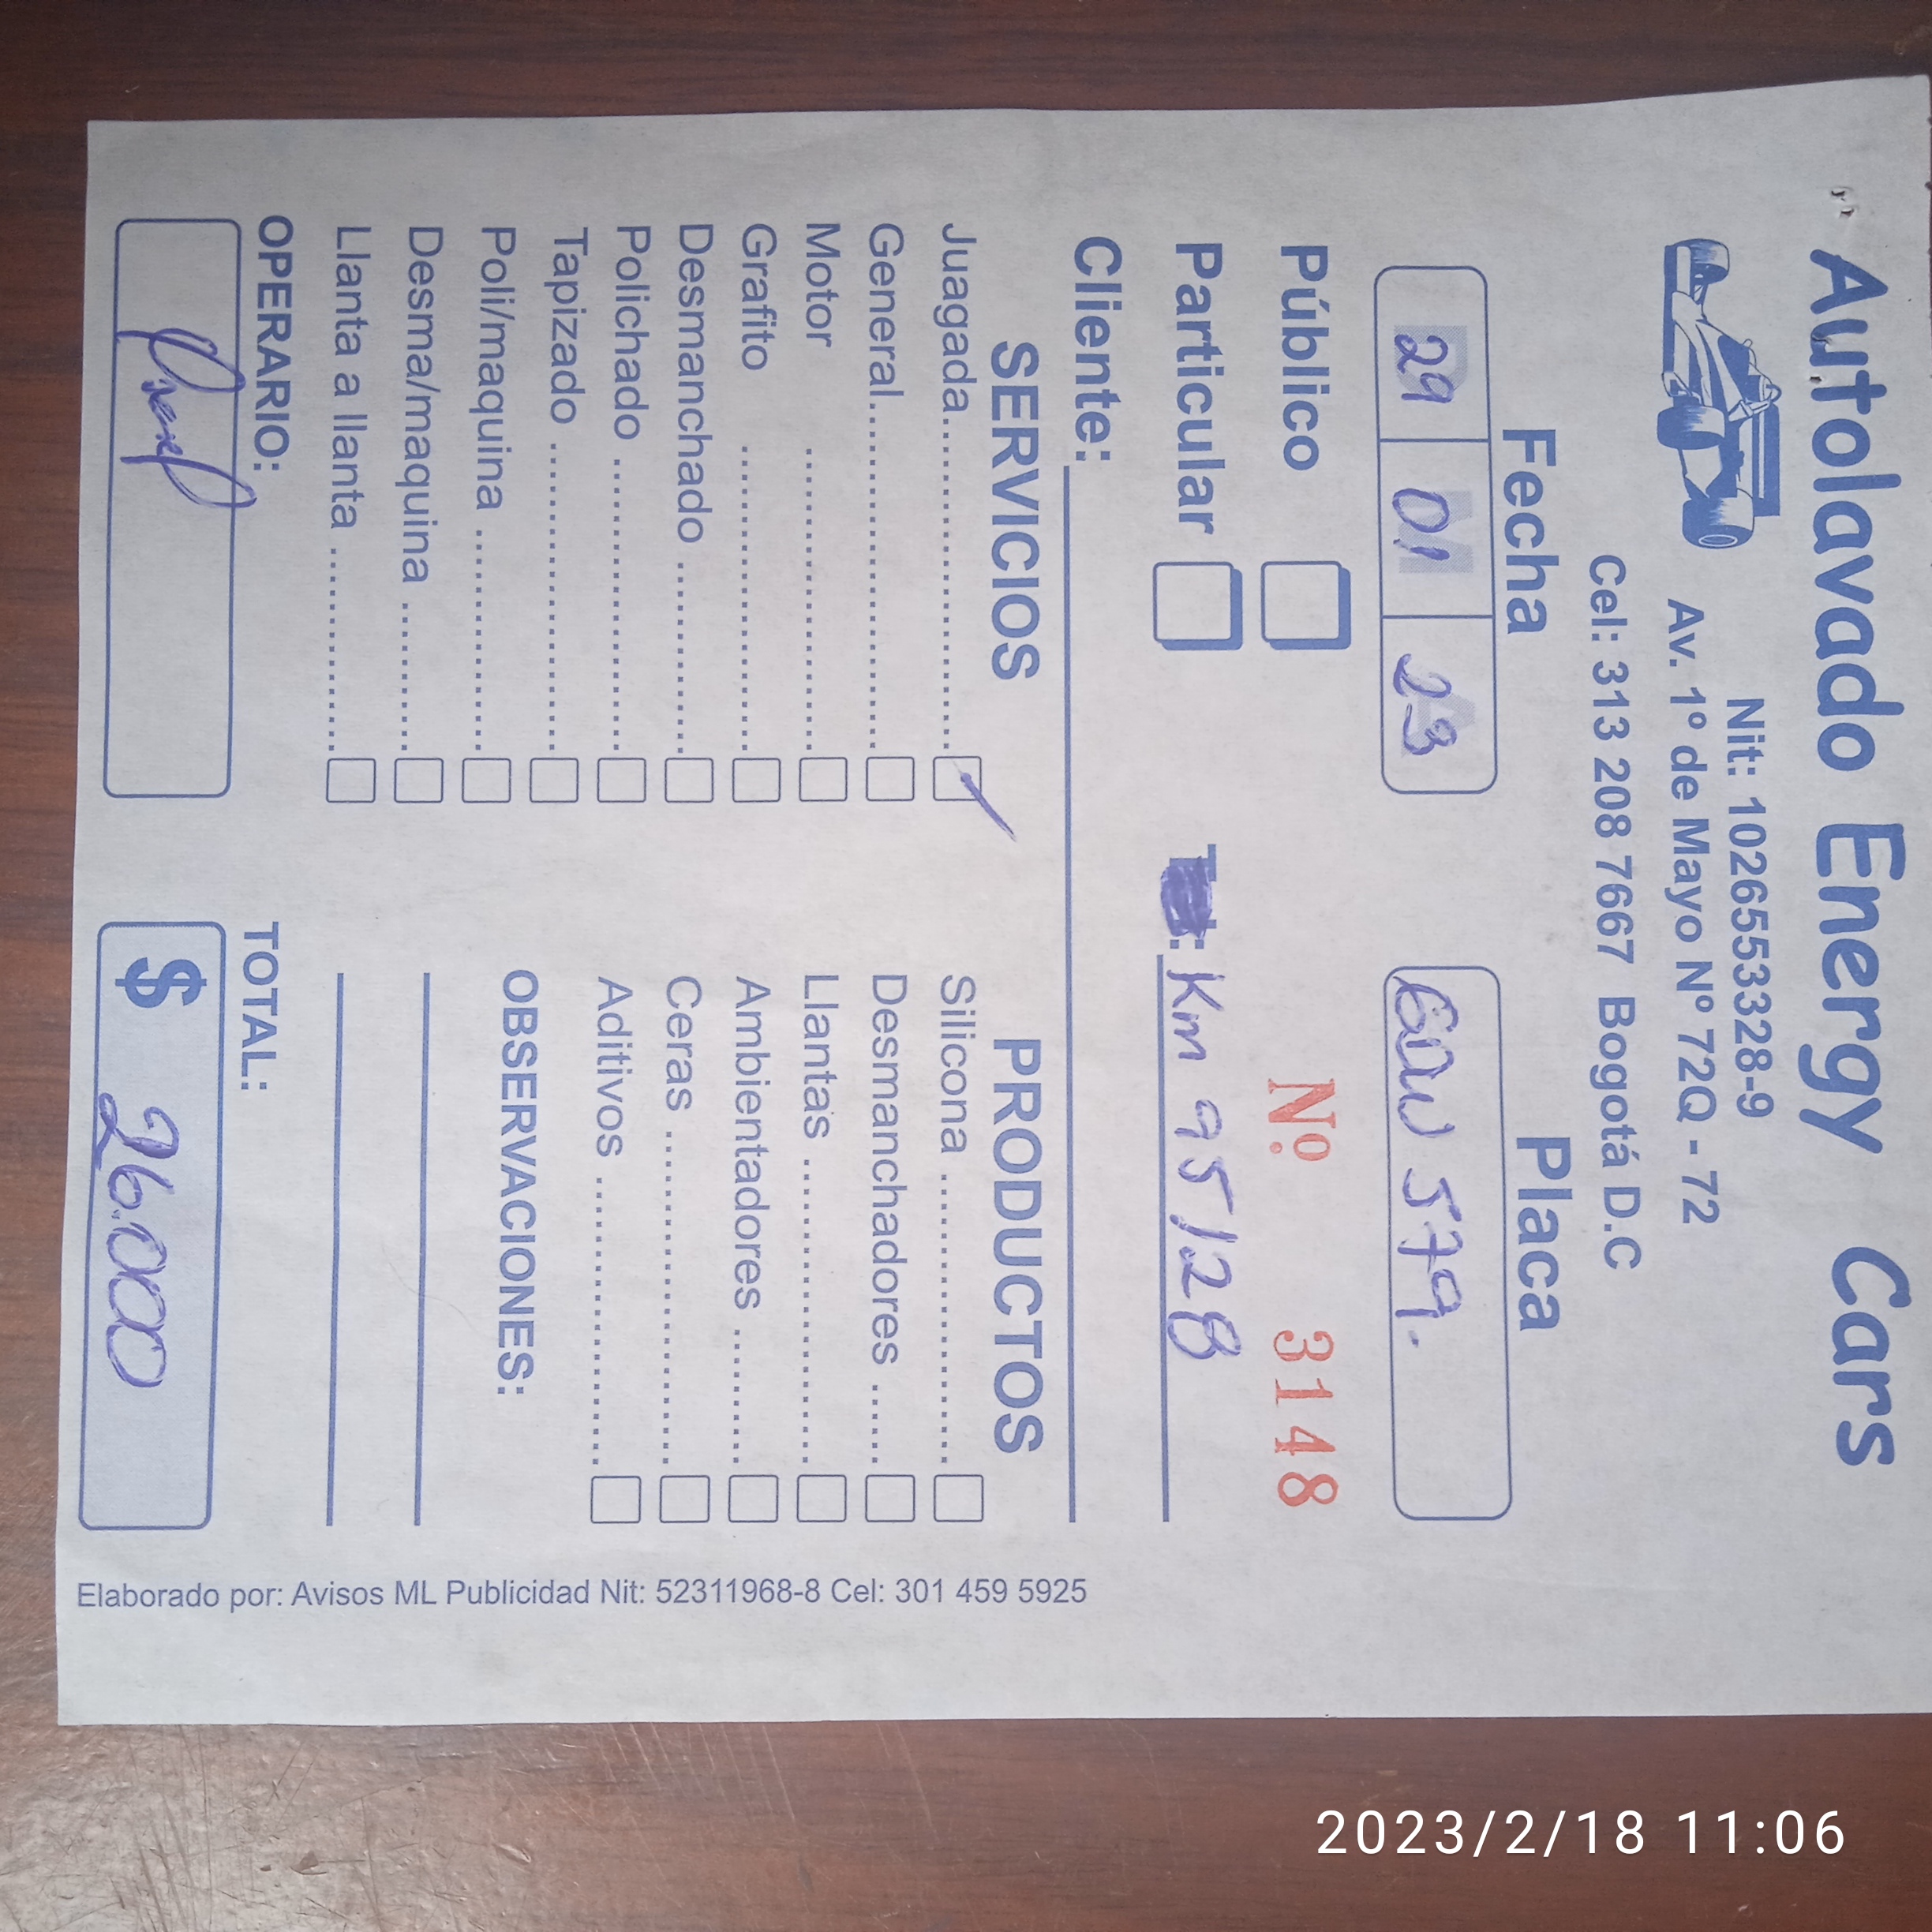 Autolavado Energy Cars
Nit: 1026553328-9
Av. 1º de Mayo Nº 72Q - 72
Cel: 313 208 7667 Bogotá D.C
Fecha Placa
29 01 23 579.
Público Nº 3148
Particular Km 95128
Cliente:
SERVICIOS
Juagada
General
Motor
Grafito
Desmanchado
Polichado
Tapizado
Poli/maquina
Desma/maquina
Llanta a llanta
OPERARIO:
PRODUCTOS
Silicona
Desmanchadores
Llantas
Ambientadores
Ceras
Aditivos
OBSERVACIONES:
TOTAL:
$ 26.000
Elaborado por: Avisos ML Publicidad Nit: 52311968-8 Cel: 301 459 5925
2023/2/18 11:06